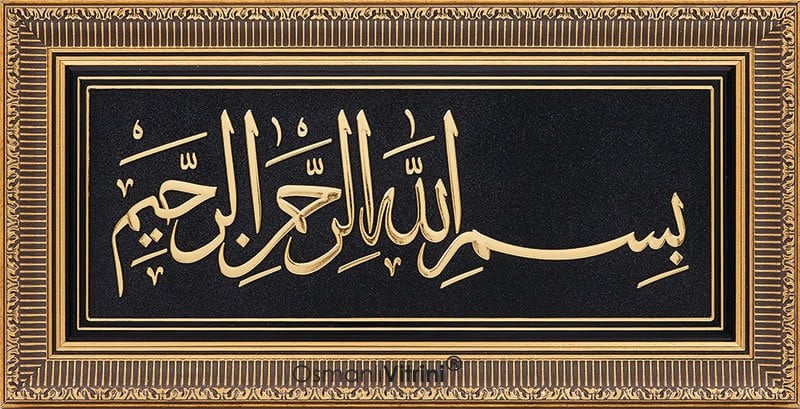 بِسْمِ اللّٰهِ الرَّحْمٰنِ الرَّحِيْمِ
OsmanlıVitrini®